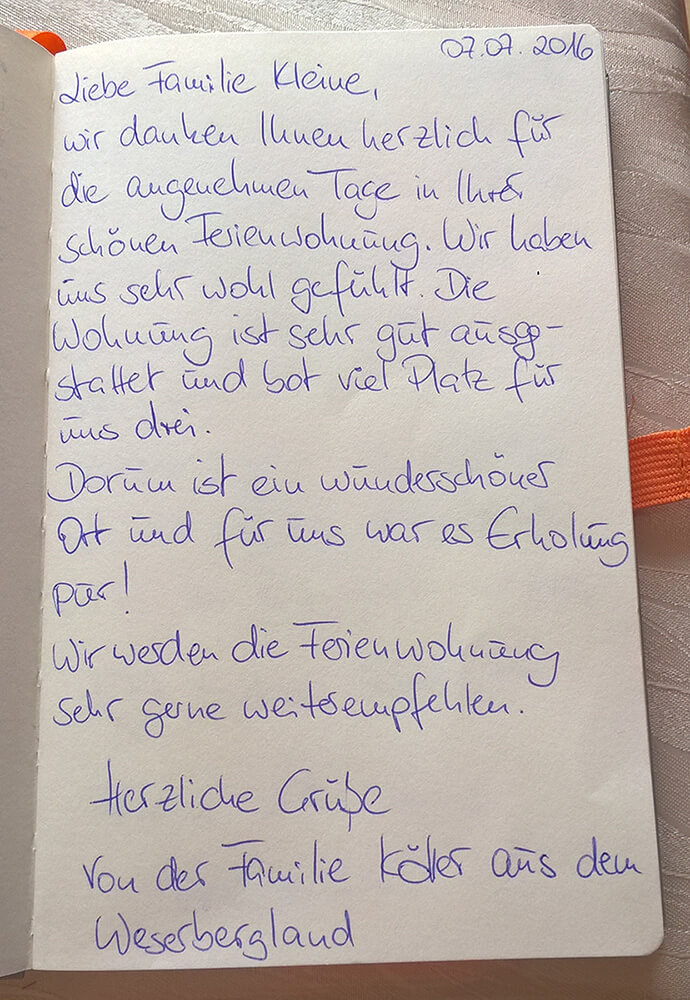 07.07.2016
Liebe Familie Kleine,
wir danken Ihnen herzlich für
die angenehmen Tage in Ihrer
schönen Ferienwohnung. Wir haben
uns sehr wohl gefühlt. Die
Wohnung ist sehr gut ausge-
stattet und bot viel Platz für
uns drei.
Dorum ist ein wunderschöner
Ort und für uns war es Erholung
pur!
Wir werden die Ferienwohnung
sehr gerne weiterempfehlen.
Herzliche Grüße
von der Familie Köller aus dem
Weserbergland